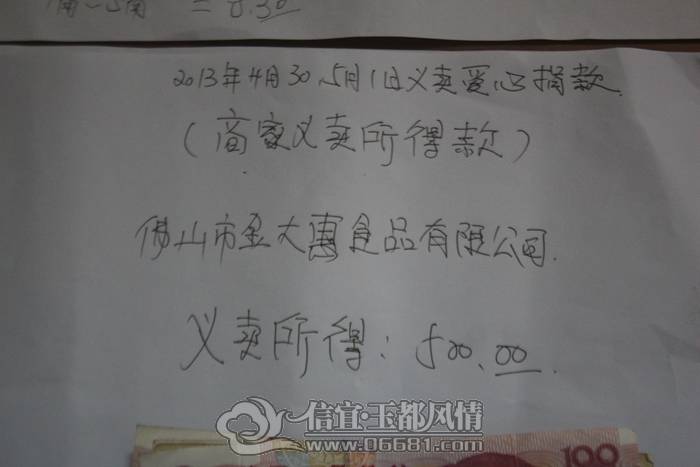 = 8.30
2013年4月30、5月1日义卖爱心捐款
(商家义卖所得款)
佛山市金大惠食品有限公司.
义卖所得: 500.00.
信宜·玉都风情
www.06681.com
100